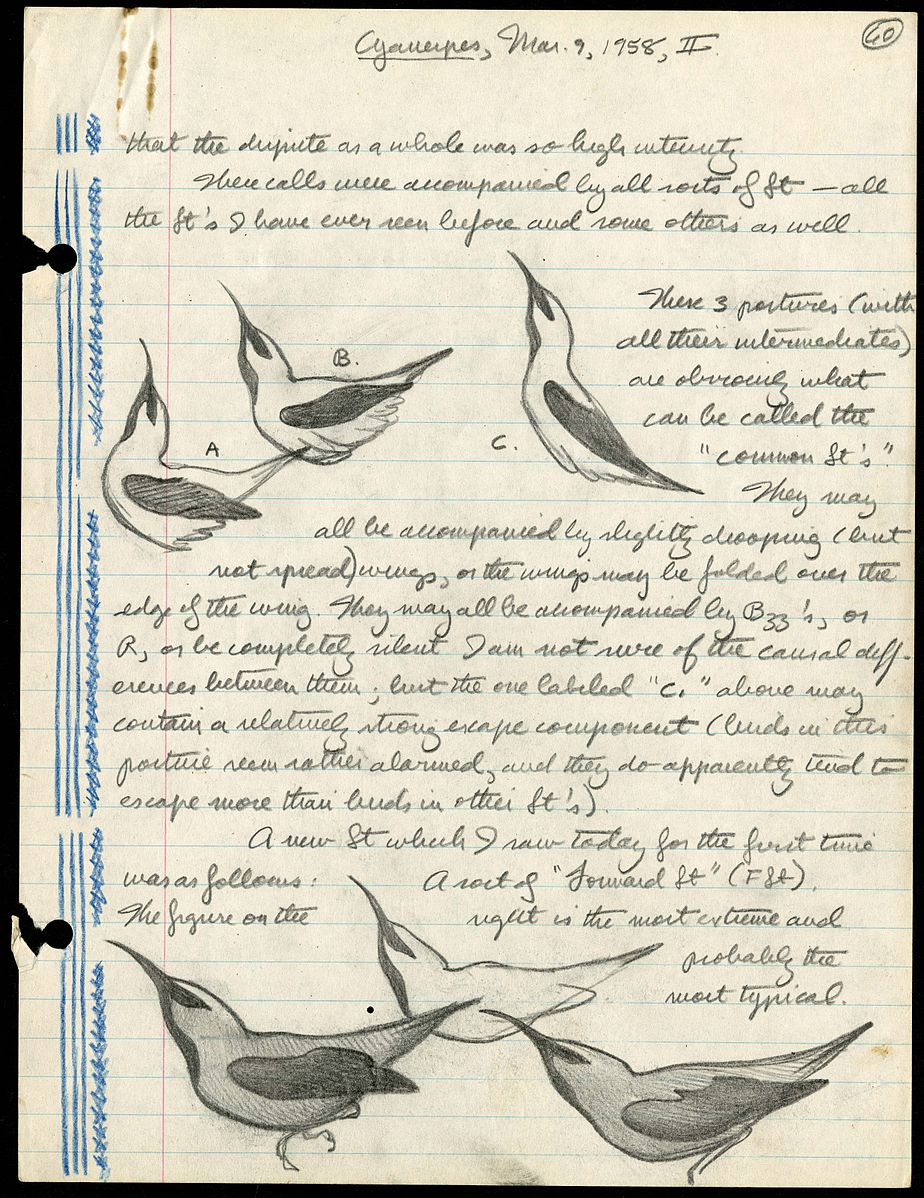 Cyanerpes, Mar. 9, 1958, II.
60
that the dispute as a whole was so high intensity.
These calls were accompanied by all sorts of St — all
the St's I have ever seen before and some others as well.
These 3 postures (with
all their intermediates)
are obviously what
can be called the
"common St's."
They may
B.
A
C.
all be accompanied by slightly drooping (but
not spread) wings, or the wings may be folded over the
edge of the wing. They may all be accompanied by Bzz's, or
R, or be completely silent. I am not sure of the causal diff-
erences between them; but the one labeled "C." above may
contain a relatively strong escape component (birds in this
posture seem rather alarmed, and they do apparently tend to
escape more than birds in other St's).
A new St which I saw today for the first time
was as follows: A sort of "Forward St" (F St).
The figure on the right is the most extreme and
probably the
most typical.